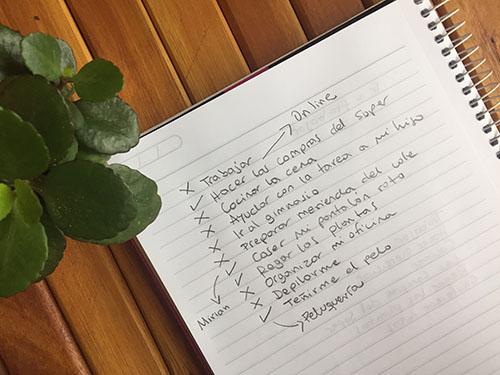 Online
Trabajar
Hacer las compras del super
Cocinar la cena
Ayudar con la tarea a mi hijo
Ir al gimnasio
Preparar merienda del cole
Coser mi pantalon roto
Regar las plantas
Organizar mi oficina
Depilarme
Teñirme el pelo
Peluquería
Mirian